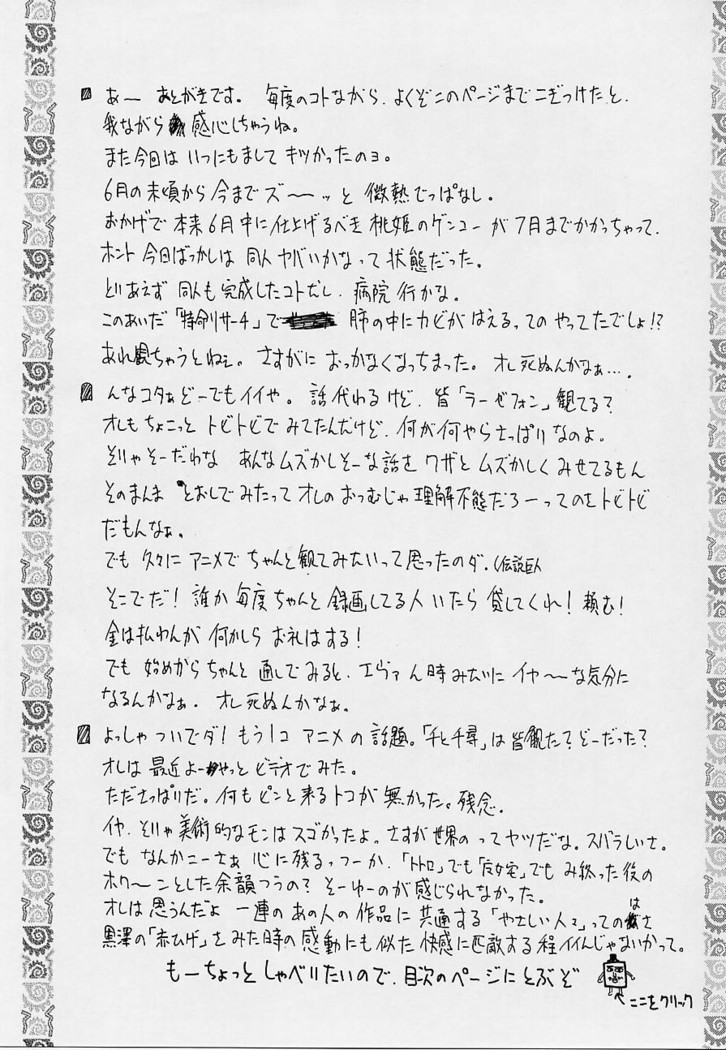 あー あとがきです。 毎度のコトながら、よくぞこのページまでこぎつけたと、
我ながら 感心しちゃうね。
また今回は いつにもまして キツかったのョ。
6月の末頃から 今まで ズ〜〜ッと 微熱でっぱなし。
おかげで 本来 6月中に仕上げるべき 桃姫のゲンコー が 7月までかかっちゃって、
ホント 今回ばっかしは 同人 ヤバいかなって 状態だった。
とりあえず 同人も 完成したコトだし、病院 行かな。
このあいだ「特命リサーチ」で 肺の中にカビがはえる、っての やってたでしょ!?
あれ観ちゃうとねぇ。さすがに おっかなくなっちまった。オレ 死ぬんかなぁ…。
んなコタぁ どーでもイイや。 話 代わるけど、皆「ラーゼフォン」観てる?
オレも ちょこっと トビトビで みてたんだけど、何が何やら さっぱり なのよ。
そりゃ そーだわな あんなムズかしそーな話を ワザと ムズかしく みせてるもん
そのまんま とおしでみたって オレの おつむじゃ 理解不能だろーってのさ トビトビ
だもんなぁ。
でも 久々に アニメで ちゃんと観てみたいって 思ったのダ。(伝説巨人
そこでだ! 誰か 毎度 ちゃんと 録画してる人 いたら 貸してくれ! 頼む!
金は払わんが 何かしら お礼はする!
でも 始めから ちゃんと 通しでみると、エヴァん時みたいに イヤ〜〜な気分に
なるんかなぁ。 オレ死ぬんかなぁ。
よっしゃ ついでダ! もう1コ アニメの話題。「千と千尋」は 皆観た? どーだった?
オレは 最近 よーやっと ビデオでみた。
たださっぱりだ。何も ピンと 来る トコが 無かった。残念。
イヤ、そりゃ 美術的なモンは スゴかったよ。さすが世界の ってヤツだな。スバラしいさ。
でも なんか こーさぁ 心に残るっつーか、「トトロ」でも「魔女宅」でも み終った後の
ホワ〜ンとした 余韻つうの? そーゆーのが 感じられなかった。
オレは 思うんだよ 一連の あの人の 作品に 共通する「やさしい人々」っての はさ
黒澤の「赤ひげ」を みた時の 感動にも 似た 快感に 匹敵する程 イイんじゃないかって。
もーちょっと しゃべりたいので、目次のページに とぶぞ
ここをクリック